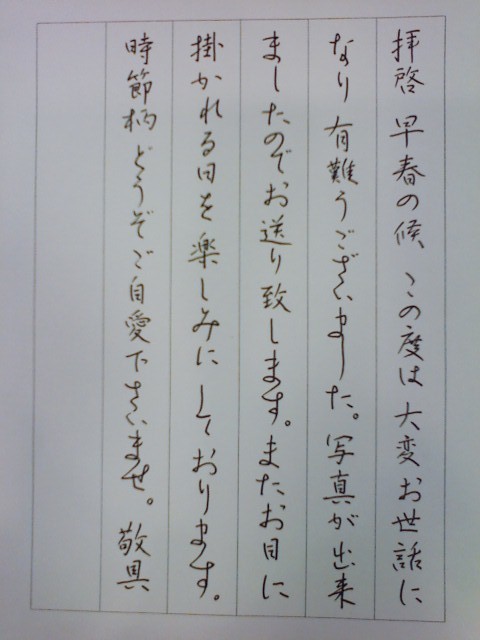 拝啓 早春の候、この度は大変お世話に
なり有難うございました。写真が出来
ましたのでお送り致します。またお目に
掛かれる日を楽しみにしております。
時節柄どうぞご自愛下さいませ。 敬具